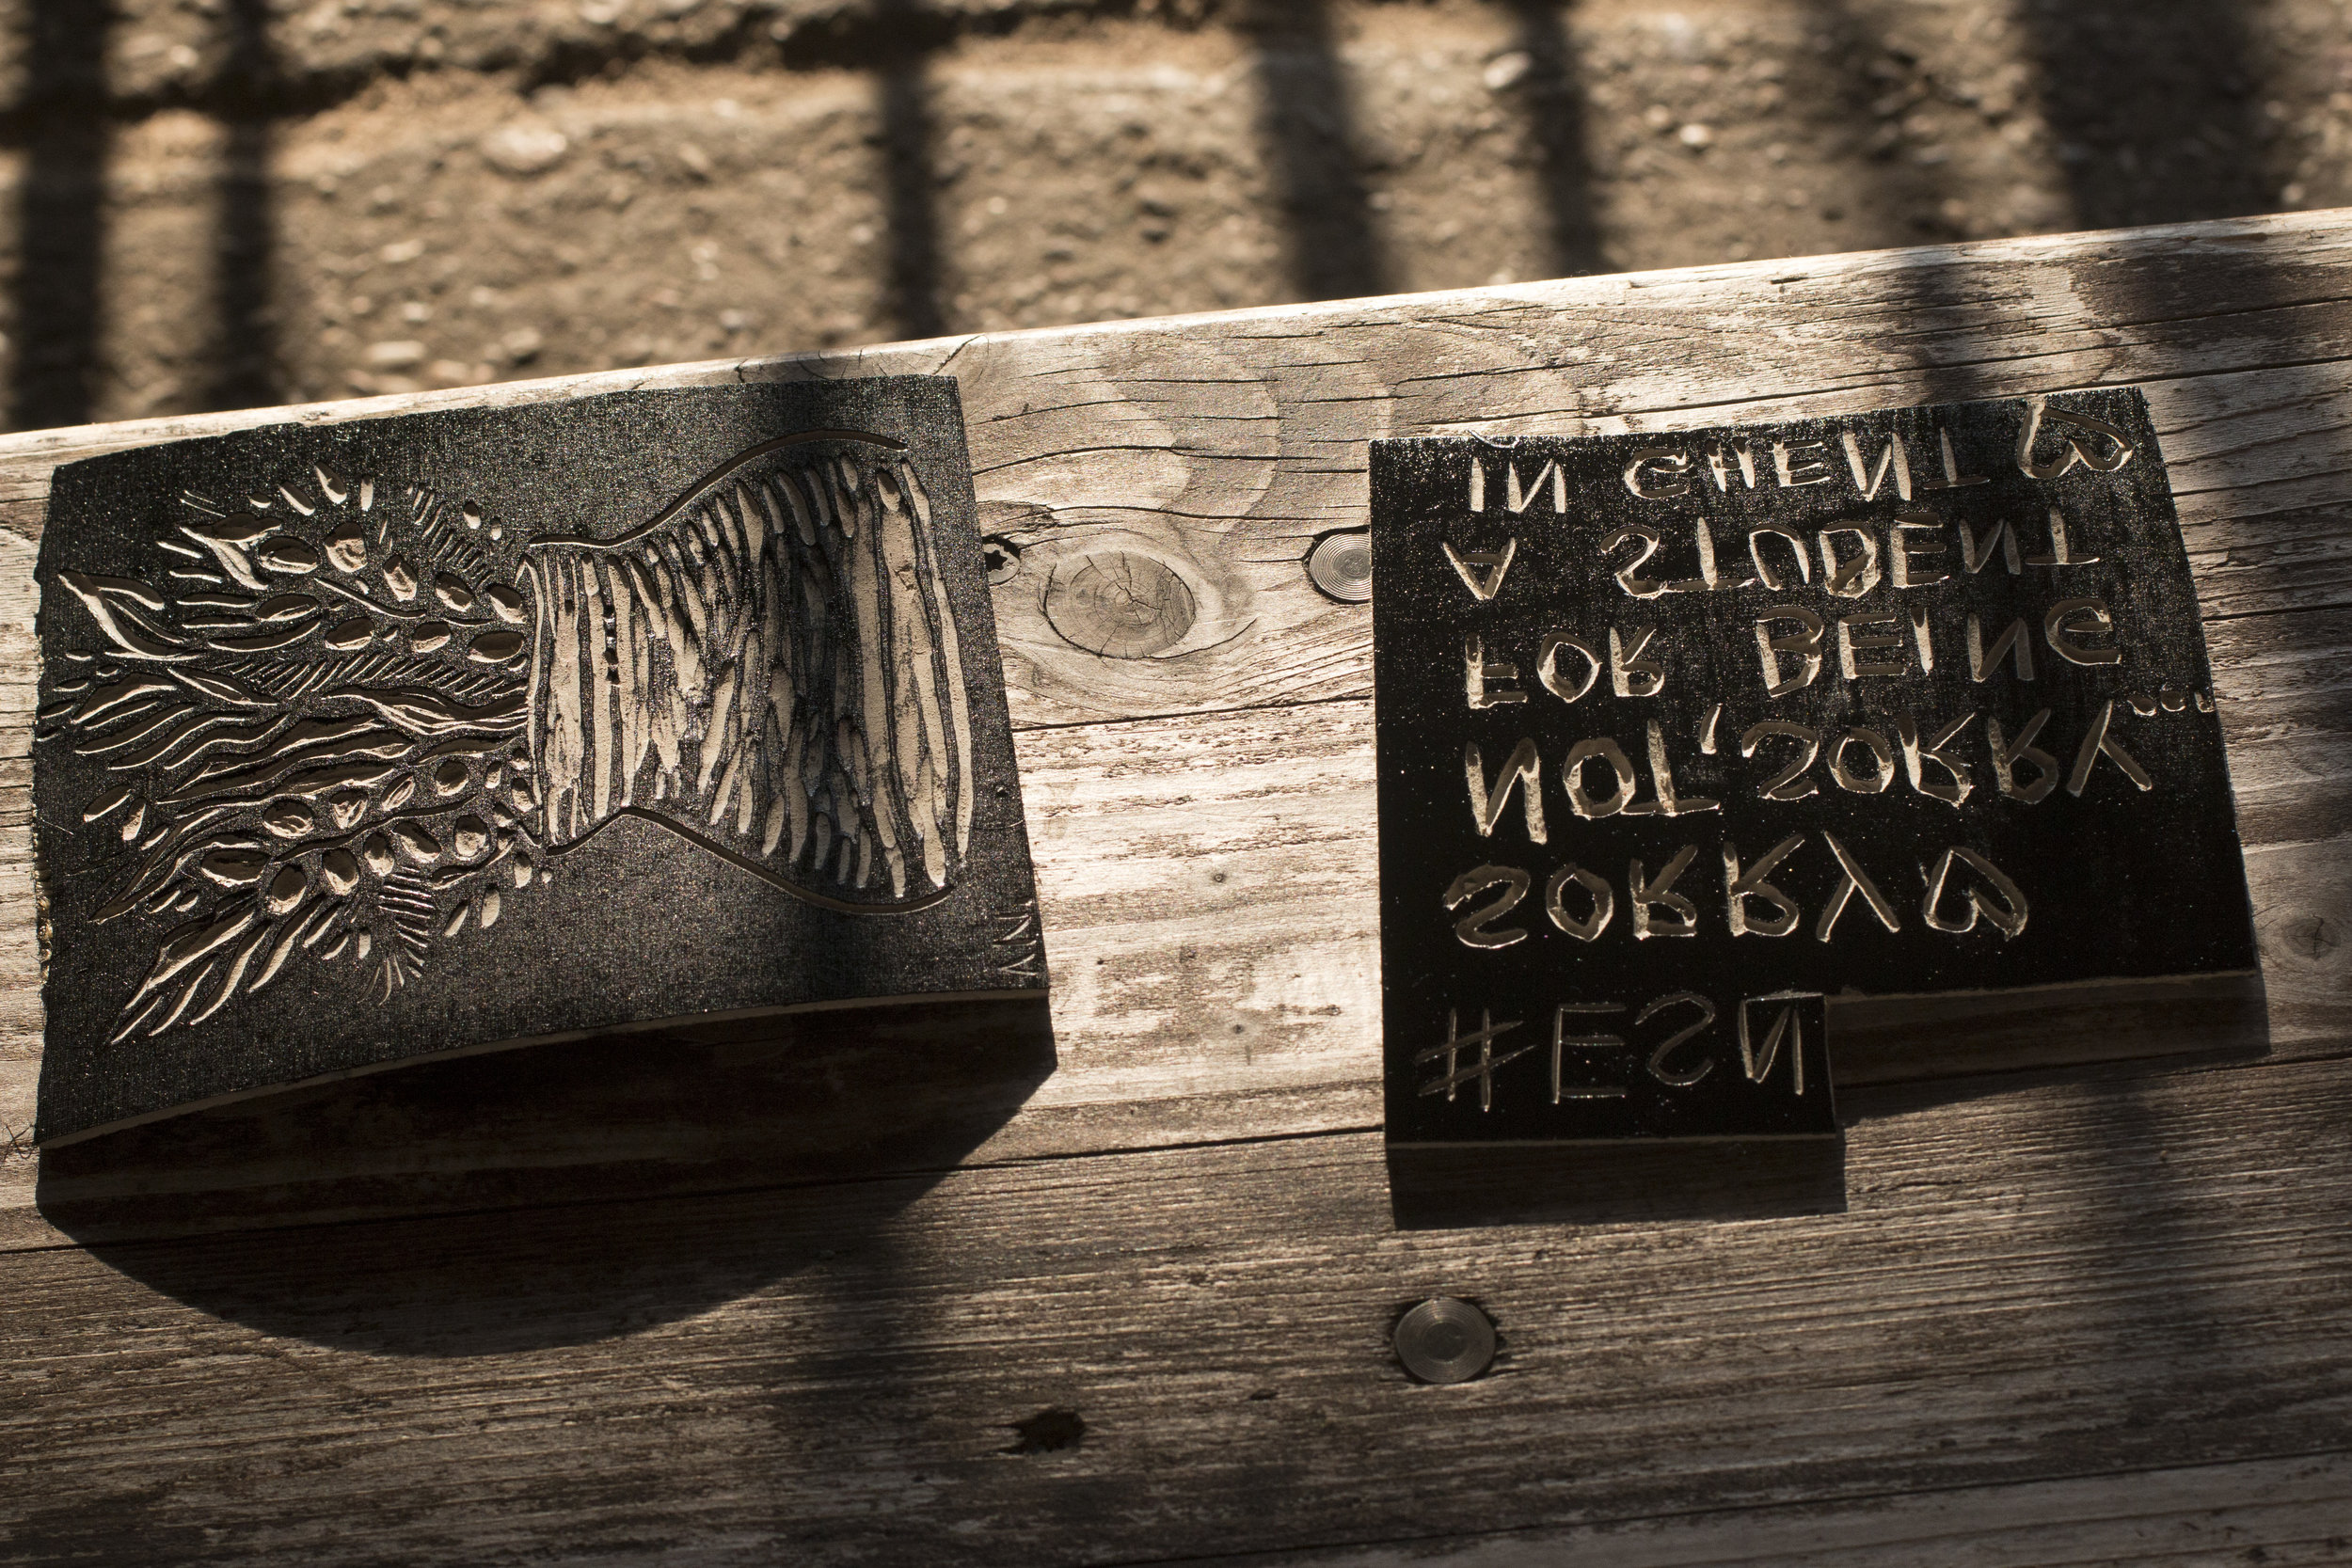 #ESN
SORRY ♡
NOT, SORRY...
FOR BEING
A STUDENT
IN GHENT ♡